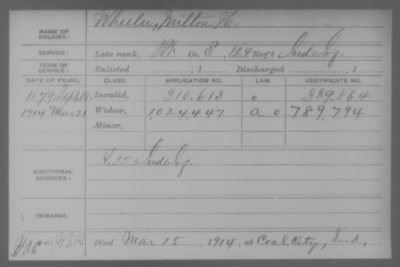 NAME OF SOLDIER: Wheeler, Milton H.
SERVICE: Late rank, Co. E, 124 Reg't Ind. Inf.
TERM OF SERVICE: Enlisted , 1 Discharged , 1
DATE OF FILING. CLASS. APPLICATION NO. LAW. CERTIFICATE NO.
1879 Invalid, 310,613 339,864
1914 Mar 21 Widow, 1024,447 789,794
Minor,
ADDITIONAL SERVICES:
REMARKS:
Died Mar 15, 1914, at Coal City, Ind.,